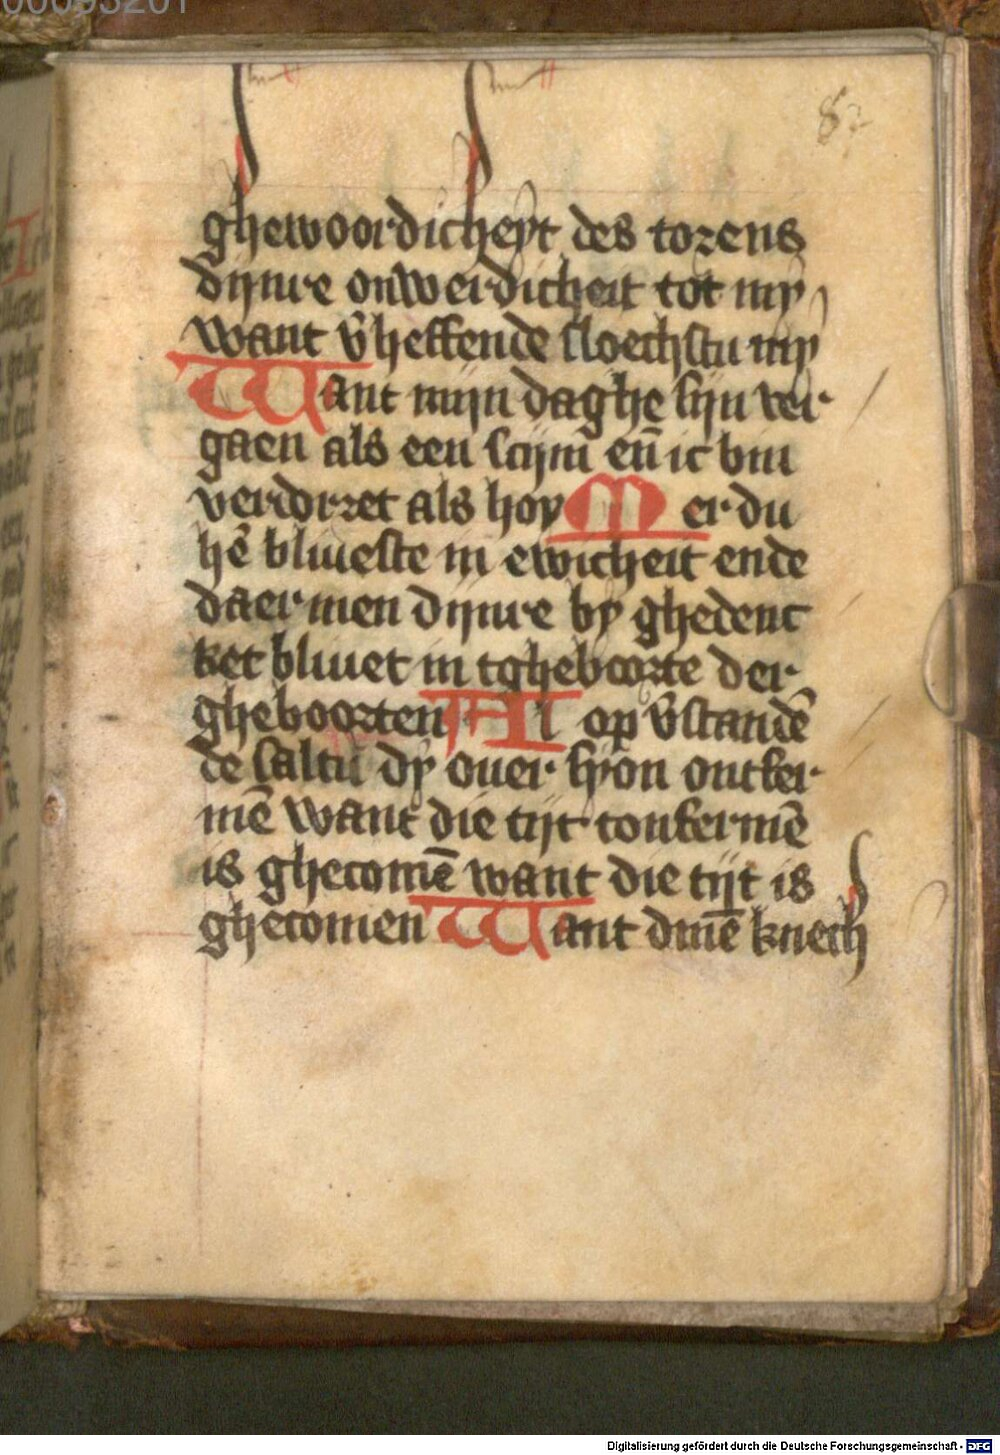 00093201
87
ghewoordicheyt des torens
dijnre onwerdicheit tot my
want v̄heffende sloechstu my
Want mijn daghe sijn ver
gaen als een scijm en̄ ic bin
verdorret als hoy Mer du
hē bliueste in ewicheit ende
daer men dijnre by ghedenc
ket bliuet in tgheboorte der
gheboorten Al op v̄standē
de saltu dy ouer syon ontfer
mē want die tijt tonfermē
is ghecomē want die tijt is
ghecomen Want dinē knech
Digitalisierung gefördert durch die Deutsche Forschungsgemeinschaft - DFG